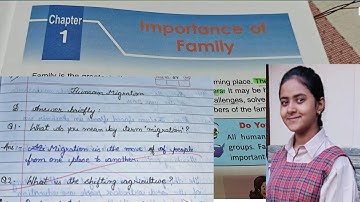 Chapter
1
Importance of
Family
Family is the
ming place. Th
ere. It may be h
allenges, solve
bers of the fam
Human Migration
Answer briefly:
Q1- What do you mean by term "migration"?
Ans:- Migration is the move of people
from one place to another.
Q2- What is the shifting agriculture?
Do Yo
All human
groups. Fa
important